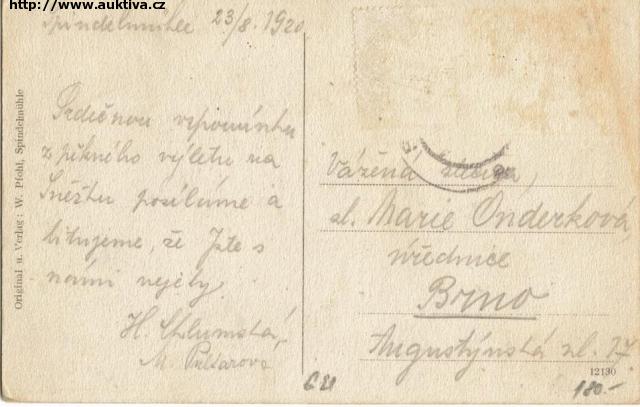 http://www.auktiva.cz
Spindelmühle 23/8. 1920
Srdečnou vzpomínku
z pěkného výletu na
Sněžku posíláme a
litujeme, že Jste s
námi nejely.
H. Chlumská,
M. Pultarová
Vážená slečna,
sl. Marie Onderková,
úřednice
Brno
Augustýnská ul. 17
Original u. Verlag: W. Pfohl, Spindelmühle
12130
180.-